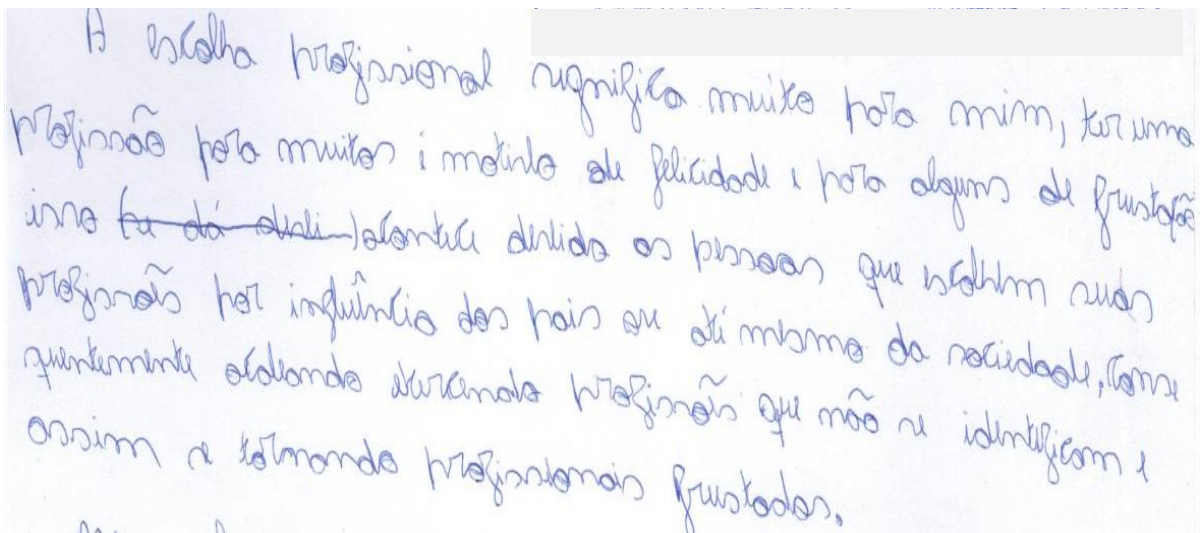 A escolha profissional significa muito para mim, ter uma
profissão para muitos é motivo de felicidade e para alguns de frustação
isso (se dá devi ) acontece devido as pessoas que escolhem suas
profissões por influência dos pais ou até mesmo da sociedade, conse
quentemente acabando exercendo profissões que não se identificam e
assim se tornando profissionais frustados.